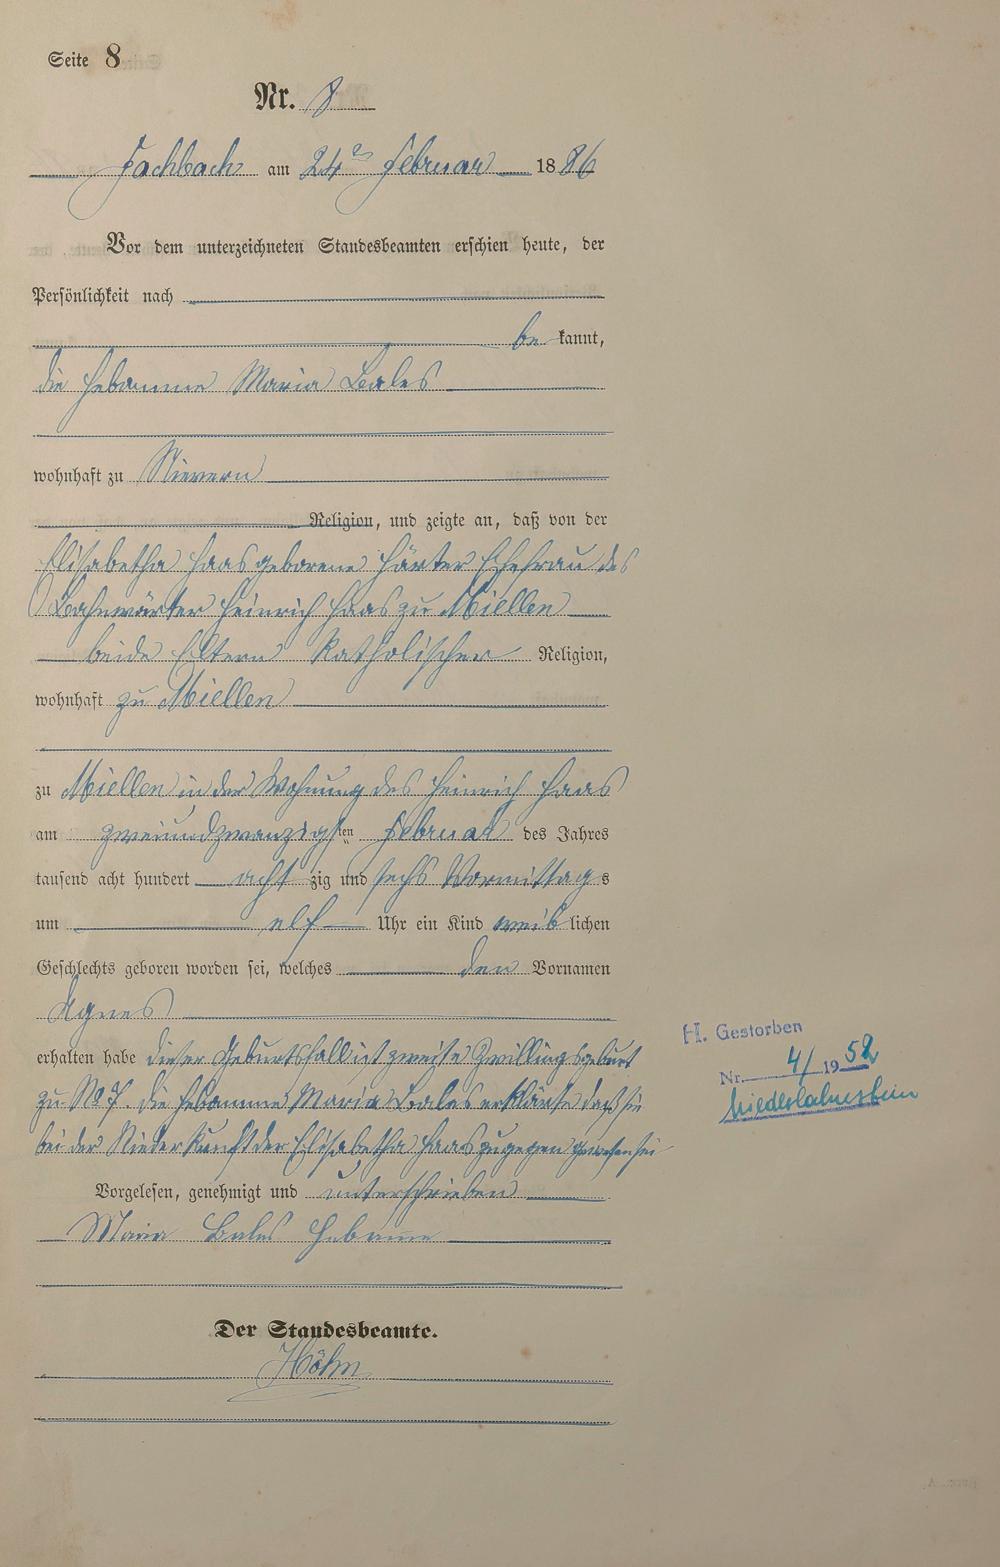 Seite 8
Nr. 8
Fachbach am 24ᵉⁿ Februar 1886
Vor dem unterzeichneten Standesbeamten erschien heute, der
Persönlichkeit nach
bekannt,
die Hebamme Maria Bales
wohnhaft zu Nievern
Religion, und zeigte an, daß von der
Elisabetha Haas geborene Härter Ehefrau des
Bahnwärter Heinrich Haas zu Miellen
beide Eltern Katholischer Religion,
wohnhaft zu Miellen
zu Miellen in der Wohnung des Heinrich Haas
am zweiundzwanzigsten Februar des Jahres
tausend acht hundert achtzig und sechs Vormittags
um elf Uhr ein Kind weiblichen
Geschlechts geboren worden sei, welches den Vornamen
Agnes
erhalten habe dieser Geburtsfall ist zweite Zwillingsgeburt
zu No 7. die Hebamme Maria Bales erklärte daß sie
bei der Niederkunft der Elisabetha Haas zugegen gewesen sei
Vorgelesen, genehmigt und unterschrieben
Maria Bales Hebamme
Der Standesbeamte.
Höhn
H. Gestorben
Nr. 4/1952
Niederlahnstein